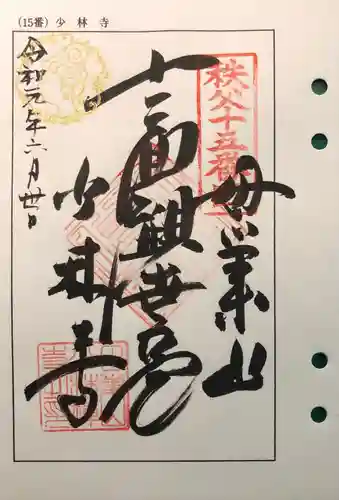 (15番) 少林寺
秩父十五番
母巣山
十一面観世音
少林寺
令和元年六月廿日